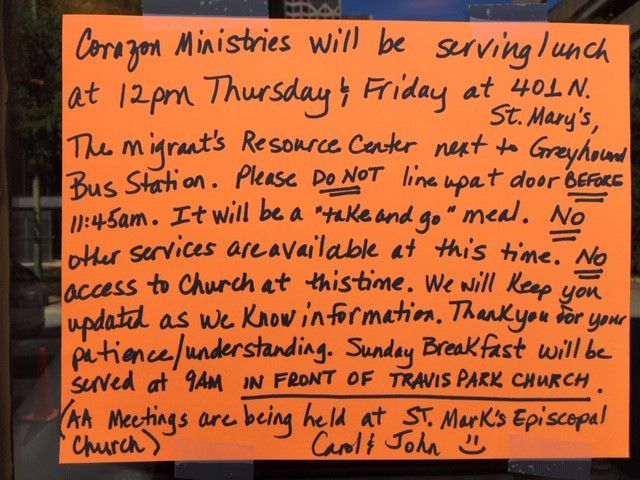 Corazon Ministries will be serving lunch
at 12pm Thursday & Friday at 401 N.
St. Mary's,
The migrant's Resource Center next to Greyhound
Bus Station. Please DO NOT line up at door BEFORE
11:45am. It will be a "take and go" meal. NO
other services are available at this time. NO
access to Church at this time. We will keep you
updated as we know information. Thank you for your
patience/understanding. Sunday Breakfast will be
served at 9AM IN FRONT OF TRAVIS PARK CHURCH.
(AA Meetings are being held at ST. Mark's Episcopal
Church) Carol & John